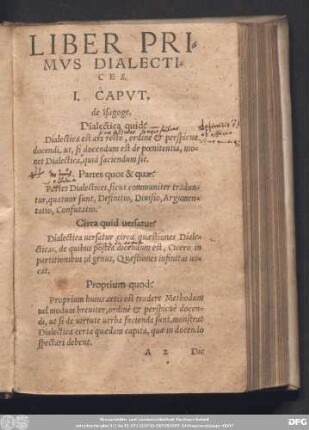 LIBER PRI-
MVS DIALECTI-
CES.
I. CAPVT,
de Isagoge,
Dialectica quid?
Dialectica est ars recte, ordine & perspicue
docendi, ut, si docendum est de poenitentia, mo-
net Dialectica, quid faciendum sit.
Partes quot & quæ?
Partes Dialectices, sicut communiter tradun-
tur, quatuor sunt, Definitio, Diuisio, Argumen-
tatio, Confutatio.
Circa quid uersatur?
Dialectica uersatur circa quæstiones Diale-
cticas, de quibus postea dicendum est, Cicero in
partitionibus id genus, Quæstiones infinitas uo-
cat.
Proprium quod?
Proprium huius artis est tradere Methodum
uel modum breuiter, ordine & perspicue docen-
di, ut si de uirtute uerba facienda sunt, monstrat
Dialectica certa quædam capita, quæ in docendo
spectari debent.
A 2 Dic
DFG